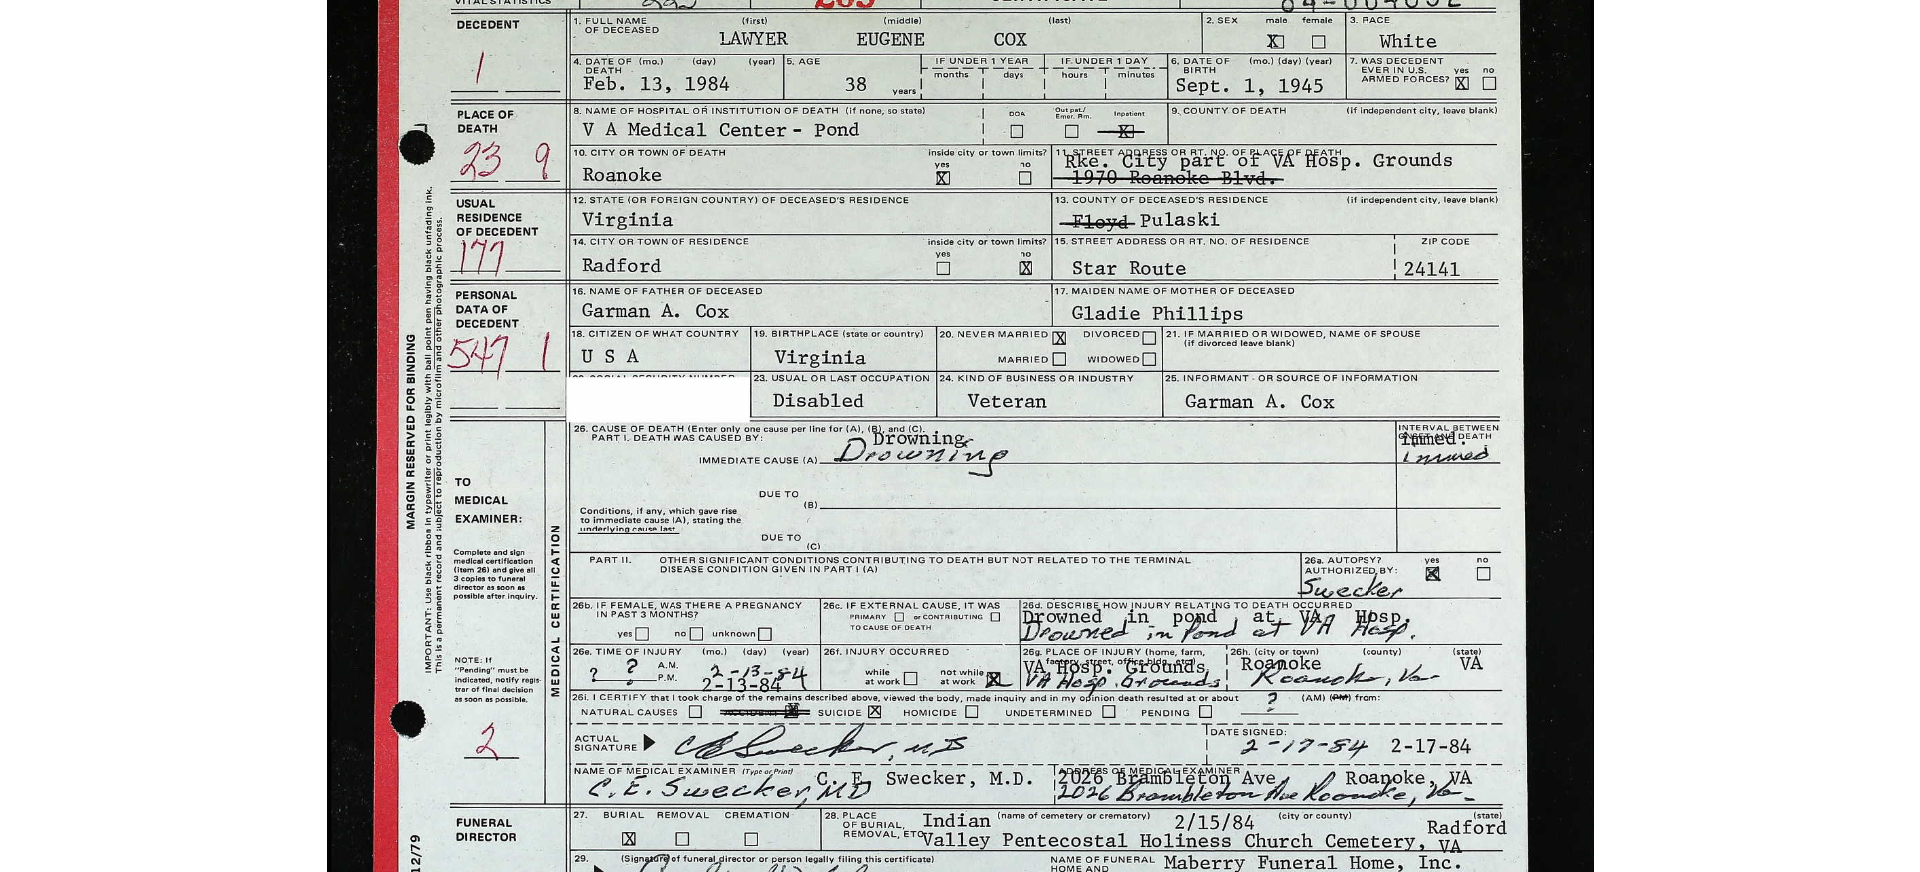 VITAL STATISTICS
DECEDENT
1
1. FULL NAME OF DECEASED (first) (middle) (last)
LAWYER EUGENE COX
2. SEX male female
X
3. RACE
White
4. DATE OF DEATH (mo.) (day) (year)
Feb. 13, 1984
5. AGE
38 years
IF UNDER 1 YEAR
months days
IF UNDER 1 DAY
hours minutes
6. DATE OF BIRTH (mo.) (day) (year)
Sept. 1, 1945
7. WAS DECEDENT EVER IN U.S. ARMED FORCES? yes no
X
PLACE OF DEATH
23 9
8. NAME OF HOSPITAL OR INSTITUTION OF DEATH (if none, so state)
V A Medical Center - Pond
DOA Out pat./ Emer. Rm. Inpatient
X
9. COUNTY OF DEATH (if independent city, leave blank)
10. CITY OR TOWN OF DEATH
Roanoke
inside city or town limits?
yes no
X
11. STREET ADDRESS OR RT. NO. OF PLACE OF DEATH
Rke. City part of VA Hosp. Grounds
1970 Roanoke Blvd.
USUAL RESIDENCE OF DECEDENT
177
12. STATE (OR FOREIGN COUNTRY) OF DECEASED'S RESIDENCE
Virginia
13. COUNTY OF DECEASED'S RESIDENCE (if independent city, leave blank)
Floyd Pulaski
14. CITY OR TOWN OF RESIDENCE
Radford
inside city or town limits?
yes no
X
15. STREET ADDRESS OR RT. NO. OF RESIDENCE
Star Route
ZIP CODE
24141
PERSONAL DATA OF DECEDENT
547 1
16. NAME OF FATHER OF DECEASED
Garman A. Cox
17. MAIDEN NAME OF MOTHER OF DECEASED
Gladie Phillips
18. CITIZEN OF WHAT COUNTRY
U S A
19. BIRTHPLACE (state or country)
Virginia
20. NEVER MARRIED X DIVORCED
MARRIED WIDOWED
21. IF MARRIED OR WIDOWED, NAME OF SPOUSE
(if divorced leave blank)
23. USUAL OR LAST OCCUPATION
Disabled
24. KIND OF BUSINESS OR INDUSTRY
Veteran
25. INFORMANT - OR SOURCE OF INFORMATION
Garman A. Cox
MARGIN RESERVED FOR BINDING
IMPORTANT: Use black ribbon in typewriter or print legibly with ball point pen having black unfading ink.
This is a permanent record and subject to reproduction by microfilm and other photographic process.
MEDICAL CERTIFICATION
TO MEDICAL EXAMINER:
Complete and sign medical certification (item 26) and give all 3 copies to funeral director as soon as possible after inquiry.
NOTE: If "Pending" must be indicated, notify registrar of final decision as soon as possible.
2
26. CAUSE OF DEATH (Enter only one cause per line for (A), (B), and (C).
PART I. DEATH WAS CAUSED BY:
Drowning
IMMEDIATE CAUSE (A) Drowning
INTERVAL BETWEEN ONSET AND DEATH
immed.
immed
DUE TO
(B)
Conditions, if any, which gave rise to immediate cause (A), stating the underlying cause last.
DUE TO
(C)
PART II. OTHER SIGNIFICANT CONDITIONS CONTRIBUTING TO DEATH BUT NOT RELATED TO THE TERMINAL DISEASE CONDITION GIVEN IN PART I (A)
26a. AUTOPSY? yes no
AUTHORIZED BY: X
Swecker
26b. IF FEMALE, WAS THERE A PREGNANCY IN PAST 3 MONTHS?
yes no unknown
26c. IF EXTERNAL CAUSE, IT WAS
PRIMARY or CONTRIBUTING
TO CAUSE OF DEATH
26d. DESCRIBE HOW INJURY RELATING TO DEATH OCCURRED
Drowned in pond at VA Hosp.
Drowned in pond at VA Hosp.
26e. TIME OF INJURY (mo.) (day) (year)
? ? A.M. P.M. 2-13-84
2-13-84
26f. INJURY OCCURRED
while at work not while at work X
26g. PLACE OF INJURY (home, farm, factory, street, office bldg., etc.)
VA Hosp. Grounds
VA Hosp. Grounds
26h. (city or town) (county) (state)
Roanoke VA
Roanoke, Va
26i. I CERTIFY that I took charge of the remains described above, viewed the body, made inquiry and in my opinion death resulted at or about ? (AM) (PM) from:
NATURAL CAUSES ACCIDENT X SUICIDE X HOMICIDE UNDETERMINED PENDING
ACTUAL SIGNATURE C E Swecker, MD
DATE SIGNED:
2-17-84 2-17-84
NAME OF MEDICAL EXAMINER (Type or Print)
C. E. Swecker, M.D.
C. E. Swecker, MD
ADDRESS OF MEDICAL EXAMINER
2026 Brambleton Ave Roanoke, VA
2026 Brambleton Ave Roanoke, Va
FUNERAL DIRECTOR
27. BURIAL REMOVAL CREMATION
X
28. PLACE OF BURIAL, REMOVAL, ETC. (name of cemetery or crematory) (city or county) (state)
Indian 2/15/84 Radford
Valley Pentecostal Holiness Church Cemetery, VA
29. (Signature of funeral director or person legally filing this certificate)
NAME OF FUNERAL HOME AND
Maberry Funeral Home, Inc.
12/79